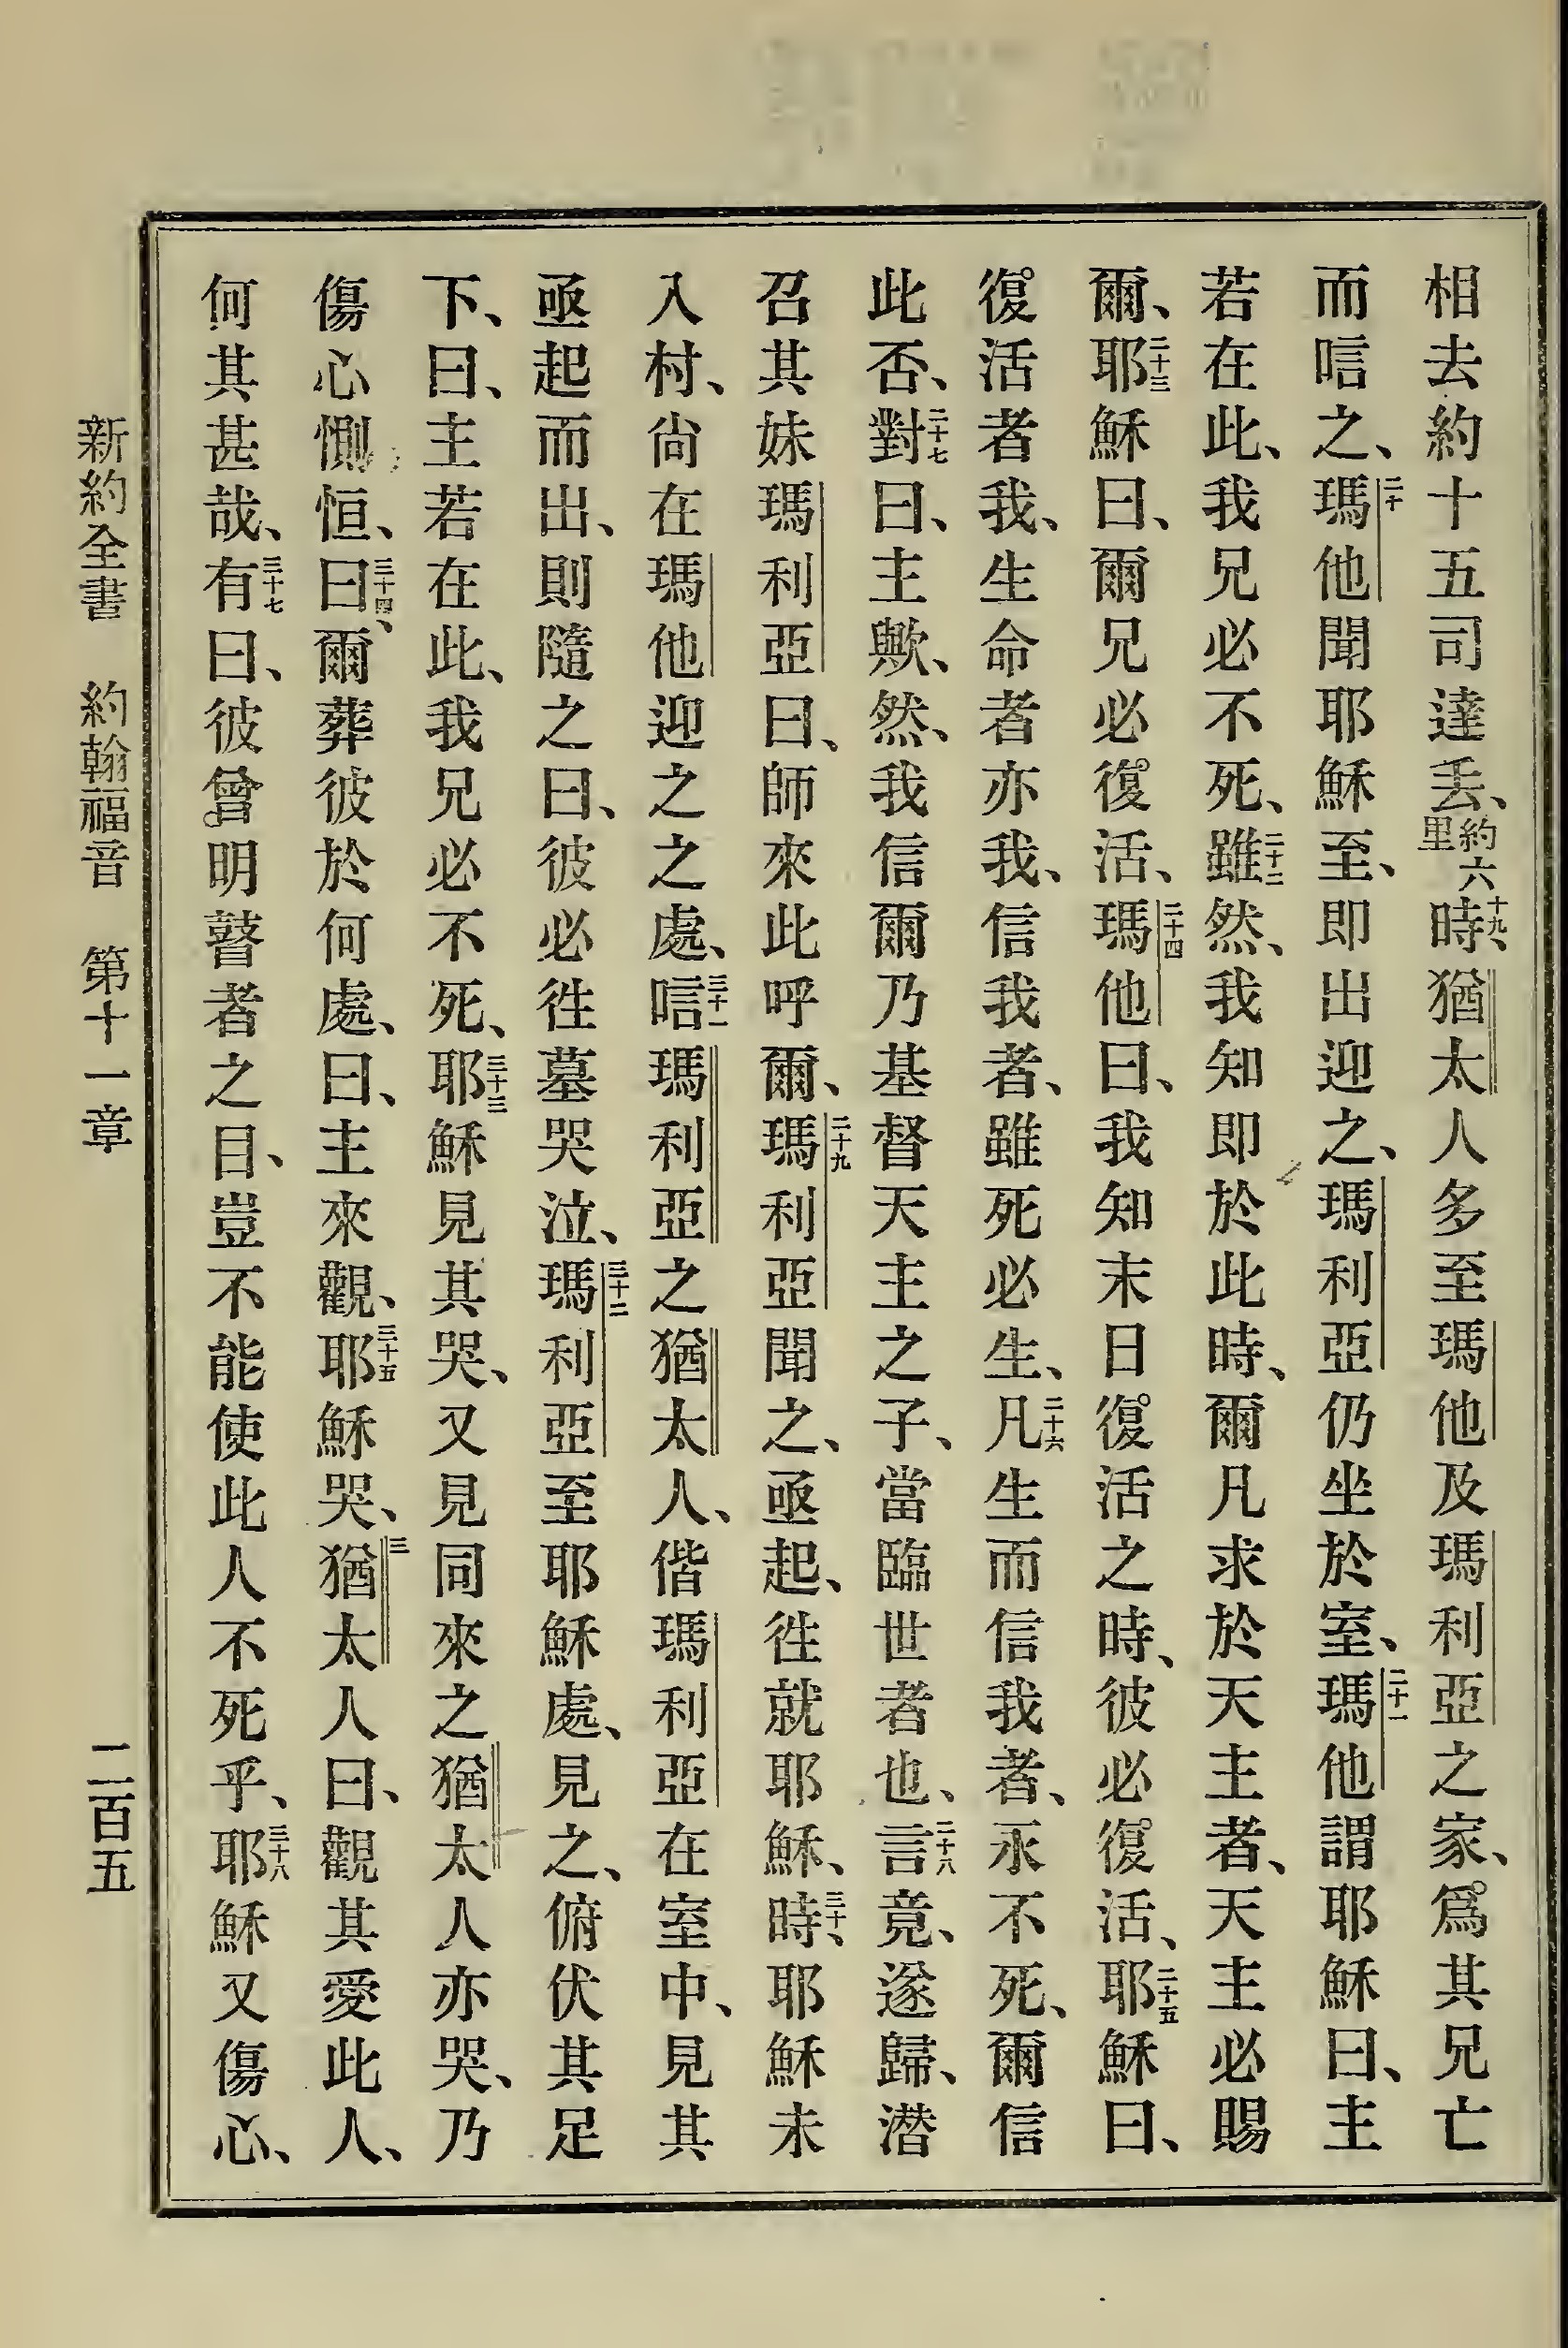 相去約十五司達丟、約六里十九時、猶太人多至瑪他及瑪利亞之家、爲其兄亡
而唁之、二十瑪他聞耶穌至、即出迎之、瑪利亞仍坐於室、二十一瑪他謂耶穌曰、主
若在此、我兄必不死、二十二雖然、我知即於此時、爾凡求於天主者、天主必賜
爾、二十三耶穌曰、爾兄必復活、二十四瑪他曰、我知末日復活之時、彼必復活、二十五耶穌曰、
復活者我、生命者亦我、信我者、雖死必生、二十六凡生而信我者、永不死、爾信
此否、二十七對曰、主歟、然、我信爾乃基督天主之子、當臨世者也、二十八言竟、遂歸、潛
召其妹瑪利亞曰、師來此呼爾、二十九瑪利亞聞之、亟起、徃就耶穌、三十時、耶穌未
入村、尙在瑪他迎之之處、三十一唁瑪利亞之猶太人、偕瑪利亞在室中、見其
亟起而出、則隨之曰、彼必徃墓哭泣、三十二瑪利亞至耶穌處、見之、俯伏其足
下、曰、主若在此、我兄必不死、三十三耶穌見其哭、又見同來之猶太人亦哭、乃
傷心惻怛、三十四曰、爾葬彼於何處、曰、主來觀、三十五耶穌哭、三猶太人曰、觀其愛此人、
何其甚哉、三十七有曰、彼曾明瞽者之目、豈不能使此人不死乎、三十八耶穌又傷心、
新約全書 約翰福音 第十一章 二百五